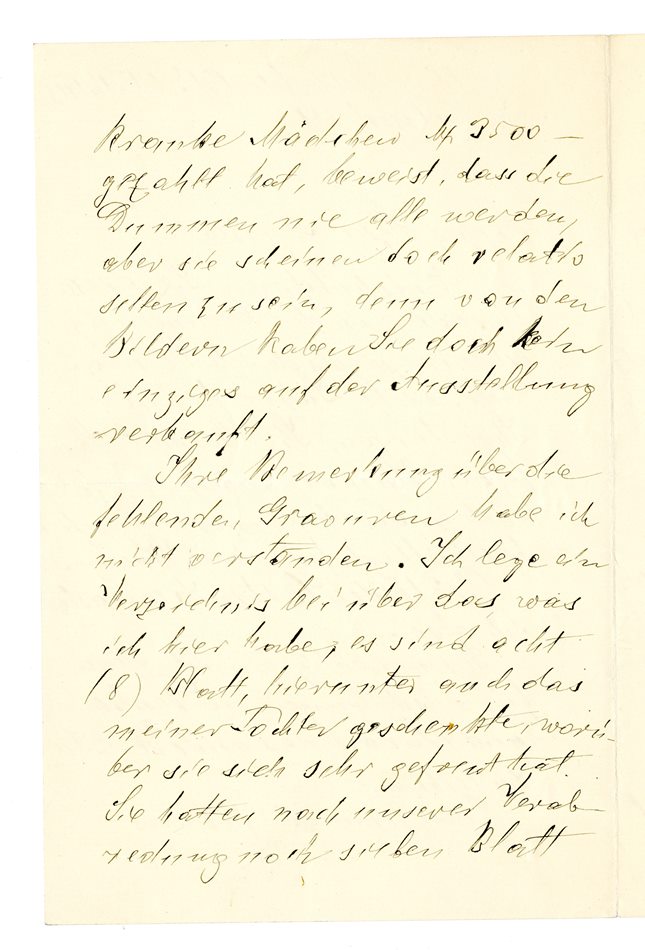 kranke Mädchen M 3500 —
gezahlt hat, beweist, dass die
Dummen nie alle werden,
aber sie scheinen doch relativ
selten zu sein, denn von den
Bildern haben Sie doch kein
einziges auf der Ausstellung
verkauft.
Ihre Bemerkung über die
fehlenden Gravuren habe ich
nicht verstanden. Ich lege ein
Verzeichnis bei über das, was
ich hier habe, es sind acht
(8) Blatt, hierunter auch das
meiner Tochter geschenkte, worü-
ber sie sich sehr gefreut hat.
Sie hatten nach unserer Verab-
redung noch sieben Blatt